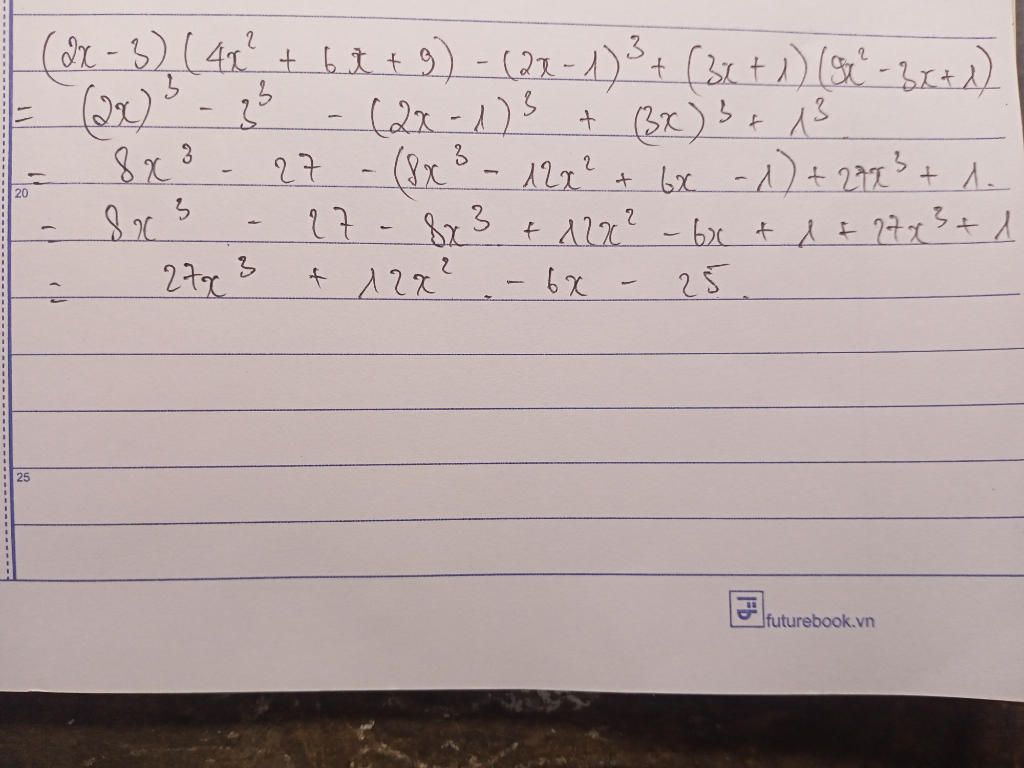 (2x - 3)(4x² + 6x + 9) - (2x - 1)³ + (3x + 1)(9x² - 3x + 1)
= (2x)³ - 3³ - (2x - 1)³ + (3x)³ + 1³
= 8x³ - 27 - (8x³ - 12x² + 6x - 1) + 27x³ + 1.
20
= 8x³ - 27 - 8x³ + 12x² - 6x + 1 + 27x³ + 1
= 27x³ + 12x² - 6x - 25.
25
futurebook.vn